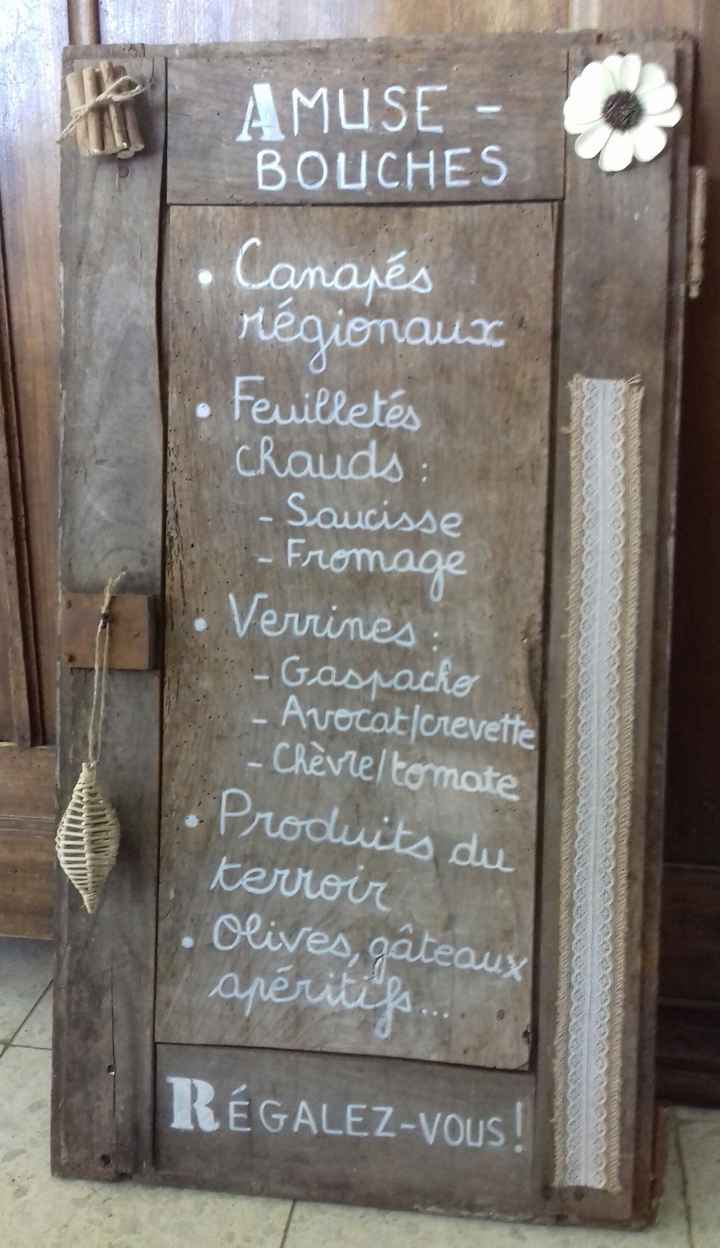 AMUSE -
BOUCHES
• Canapés
régionaux
• Feuilletés
chauds :
- Saucisse
- Fromage
• Verrines :
- Gaspacho
- Avocat/crevette
- Chèvre/tomate
• Produits du
terroir
• Olives, gâteaux
apéritifs...
RÉGALEZ-VOUS!